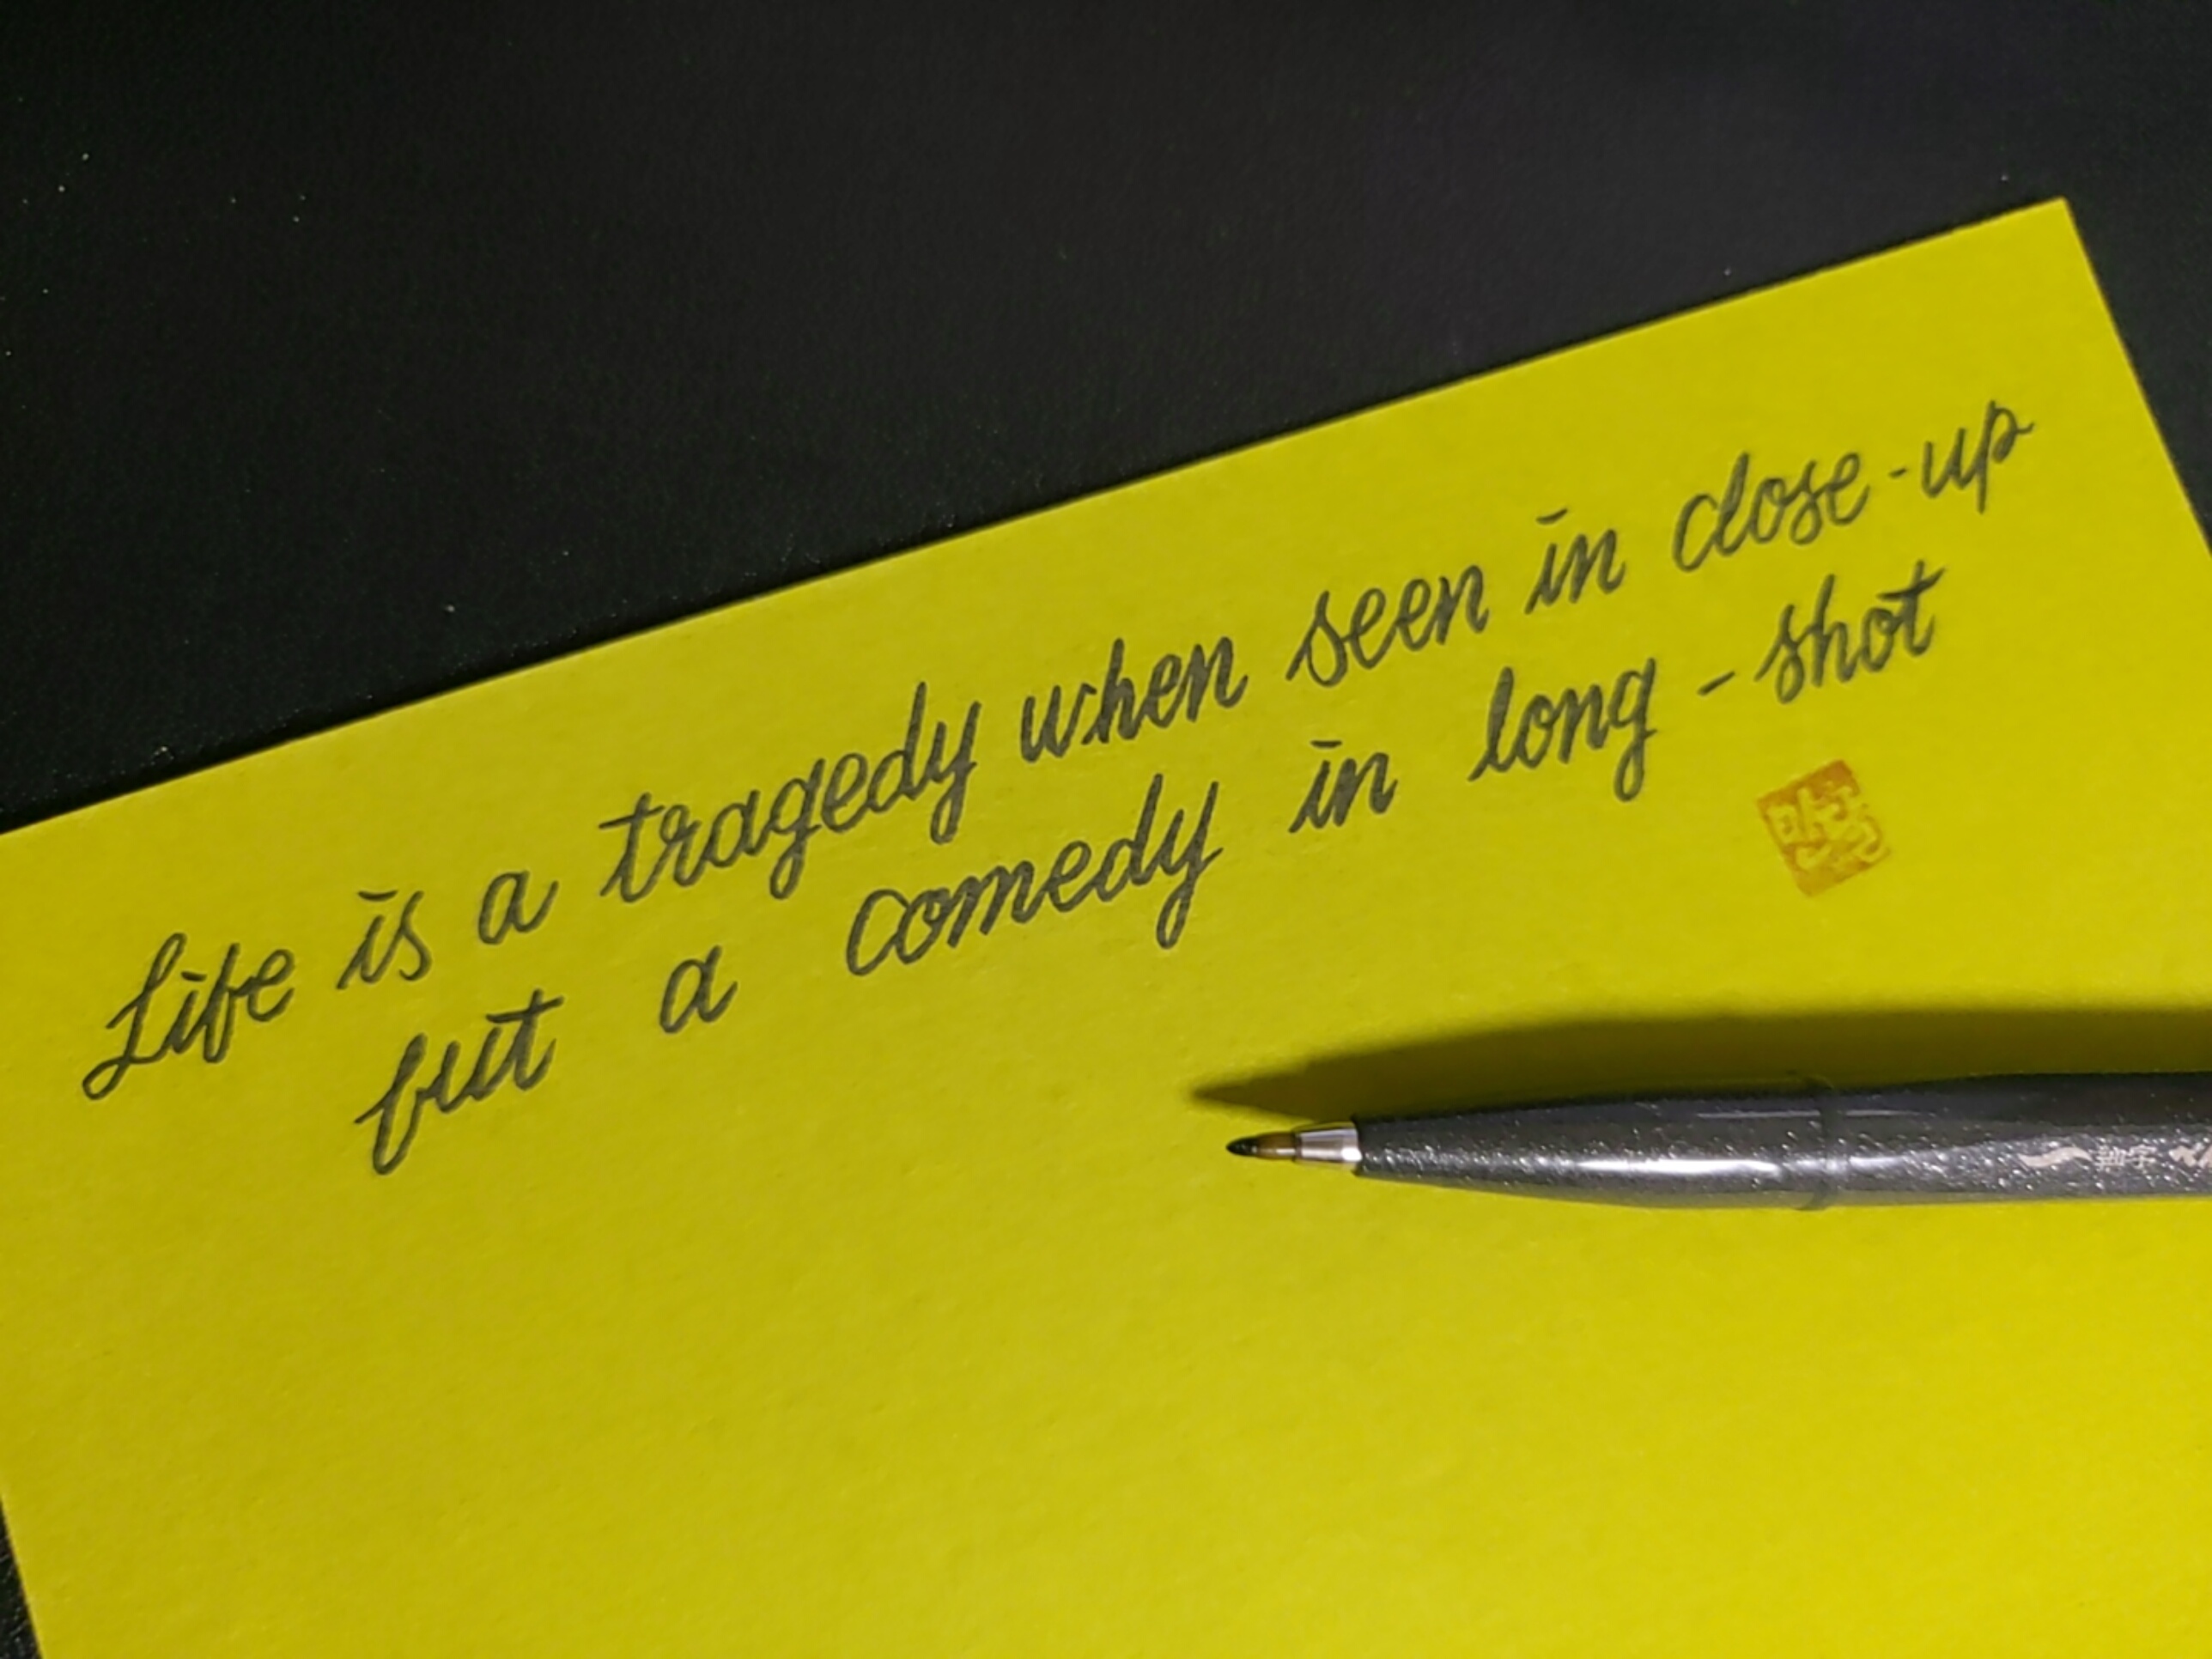 Life is a tragedy when seen in close-up
but a comedy in long-shot
細字